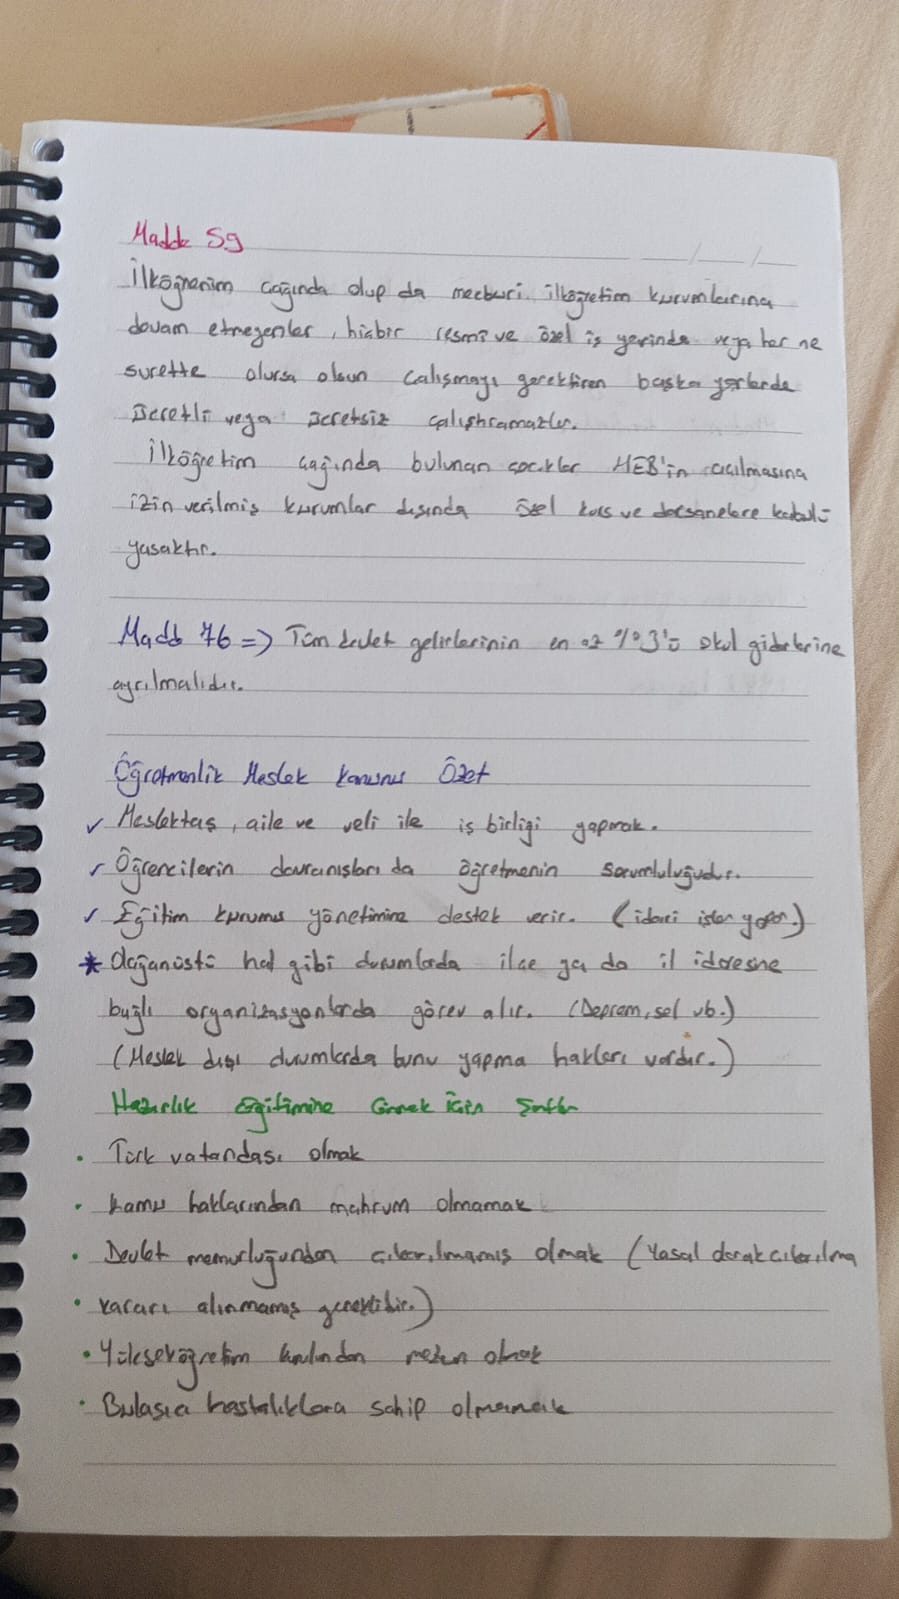 Madde 59
İlköğrenim çağında olup da mecburi ilköğretim kurumlarına
devam etmeyenler, hiçbir resmi ve özel iş yerinde veya her ne
surette olursa olsun çalışmayı gerektiren başka yerlerde
ücretli veya ücretsiz çalıştıramazlar.
İlköğretim çağında bulunan çocuklar MEB'in açılmasına
izin verilmiş kurumlar dışında özel kurs ve dersanelere kabulü
yasaktır.
Madde 76 => Tüm devlet gelirlerinin en az %3'ü okul giderlerine
ayrılmalıdır.
Öğretmenlik Meslek Kanunu Özet
✓ Meslektaş, aile ve veli ile iş birliği yapmak.
✓ Öğrencilerin davranışları da öğretmenin sorumluluğudur.
✓ Eğitim kurumu yönetimine destek verir. (idari işler yapar.)
* Olağanüstü hal gibi durumlarda ilçe ya da il idaresine
bağlı organizasyonlarda görev alır. (Deprem, sel vb.)
(Meslek dışı durumlarda bunu yapma hakları vardır.)
Hazırlık Eğitimine Girmek İçin Şartlar
• Türk vatandaşı olmak
• Kamu haklarından mahrum olmamak
• Devlet memurluğundan çıkarılmamış olmak (Yasal olarak çıkarılma
• kararı alınmamış gerektibir.)
• Yükseköğretim mezun olmak
• Bulaşıcı hastalıklara sahip olmamak